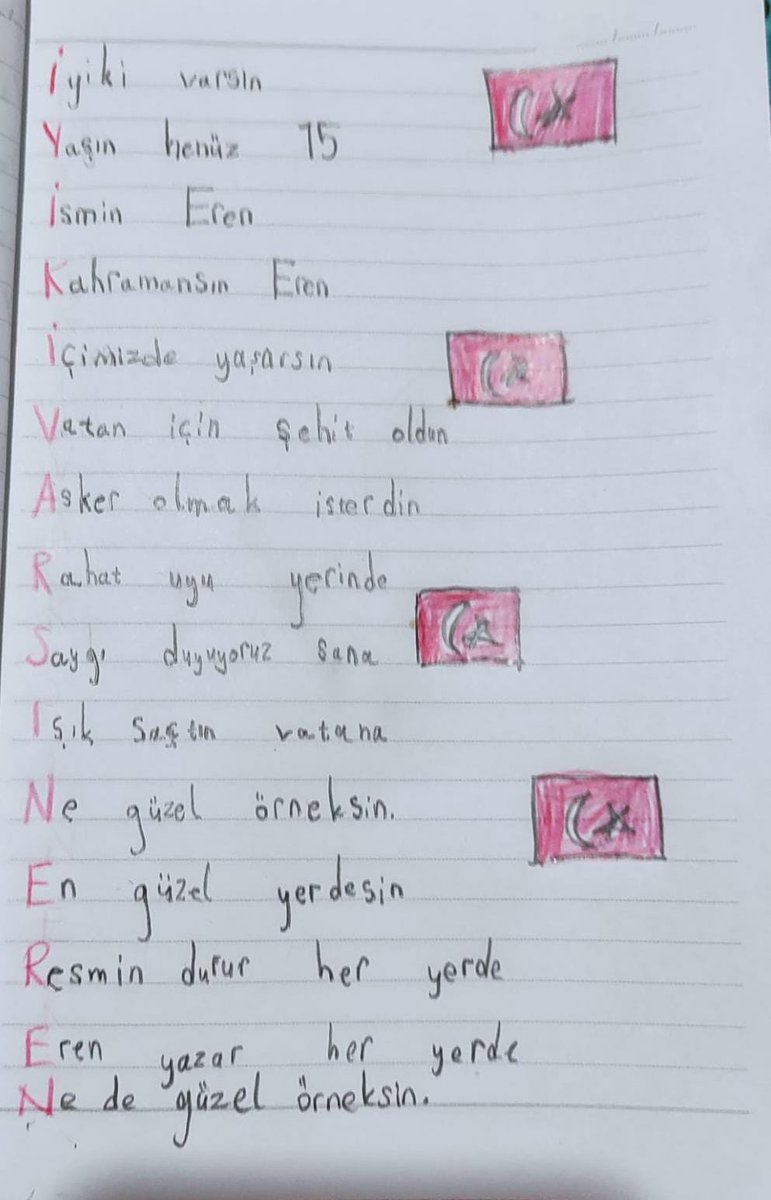 İyiki varsın
Yaşın henüz 15
İsmin Eren
Kahramansın Eren
İçimizde yaşarsın
Vatan için şehit oldun
Asker olmak isterdin
Rahat uyu yerinde
Saygı duyuyoruz sana
Işık saçtın vatana
Ne güzel örneksin.
En güzel yerdesin
Resmin durur her yerde
Eren yazar her yerde
Ne de güzel örneksin.